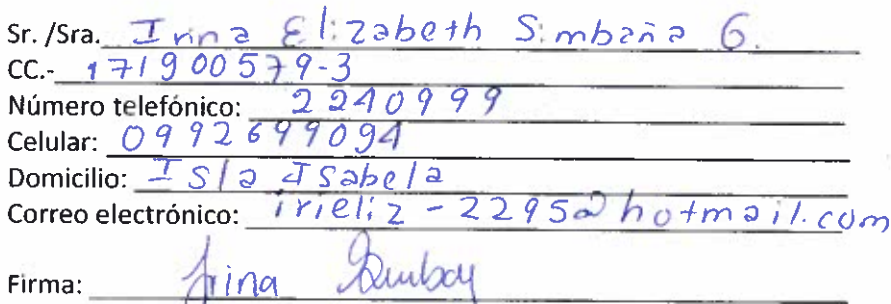 Sr. /Sra. Irina Elizabeth Simbaña G.
CC.- 171900579-3
Número telefónico: 2240999
Celular: 0992699094
Domicilio: Isla Isabela
Correo electrónico: irieliz-2295@hotmail.com
Firma: Irina